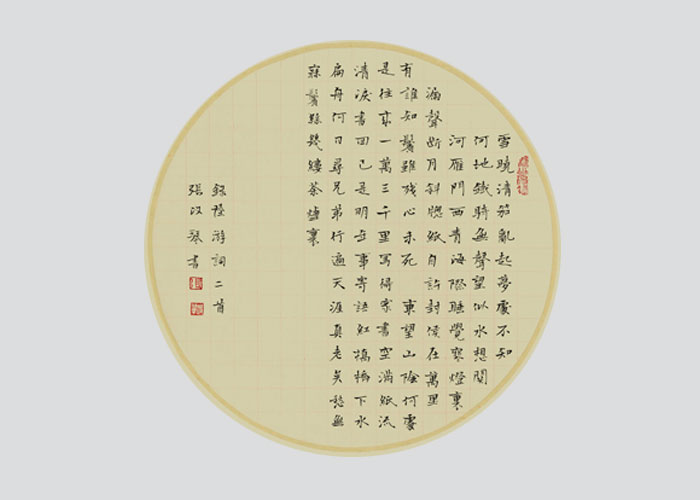 雪曉清笳亂起夢處不知
何地鐵騎無聲望似水想關
河雁門西青海際睡覺寒燈裏
漏聲斷月斜窓紙自許封侯在萬里
有誰知鬢雖殘心未死 東望山陰何處
是往來一萬三千里寫得家書空滿紙流
清淚書回已是明年事寄語紅橋橋下水
扁舟何日尋兄弟行遍天涯真老矣愁無
寐鬢絲幾縷茶煙裏
錄陸游詞二首
張改琴書